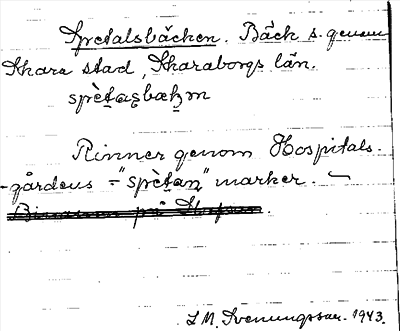 Spetalsbäcken. Bäck s. genom
Skara stad, Skaraborgs län.
Rinner genom Hospitals-
-gårdens = "spètan̠" marker.
S. M. Svenungsson. 1943.